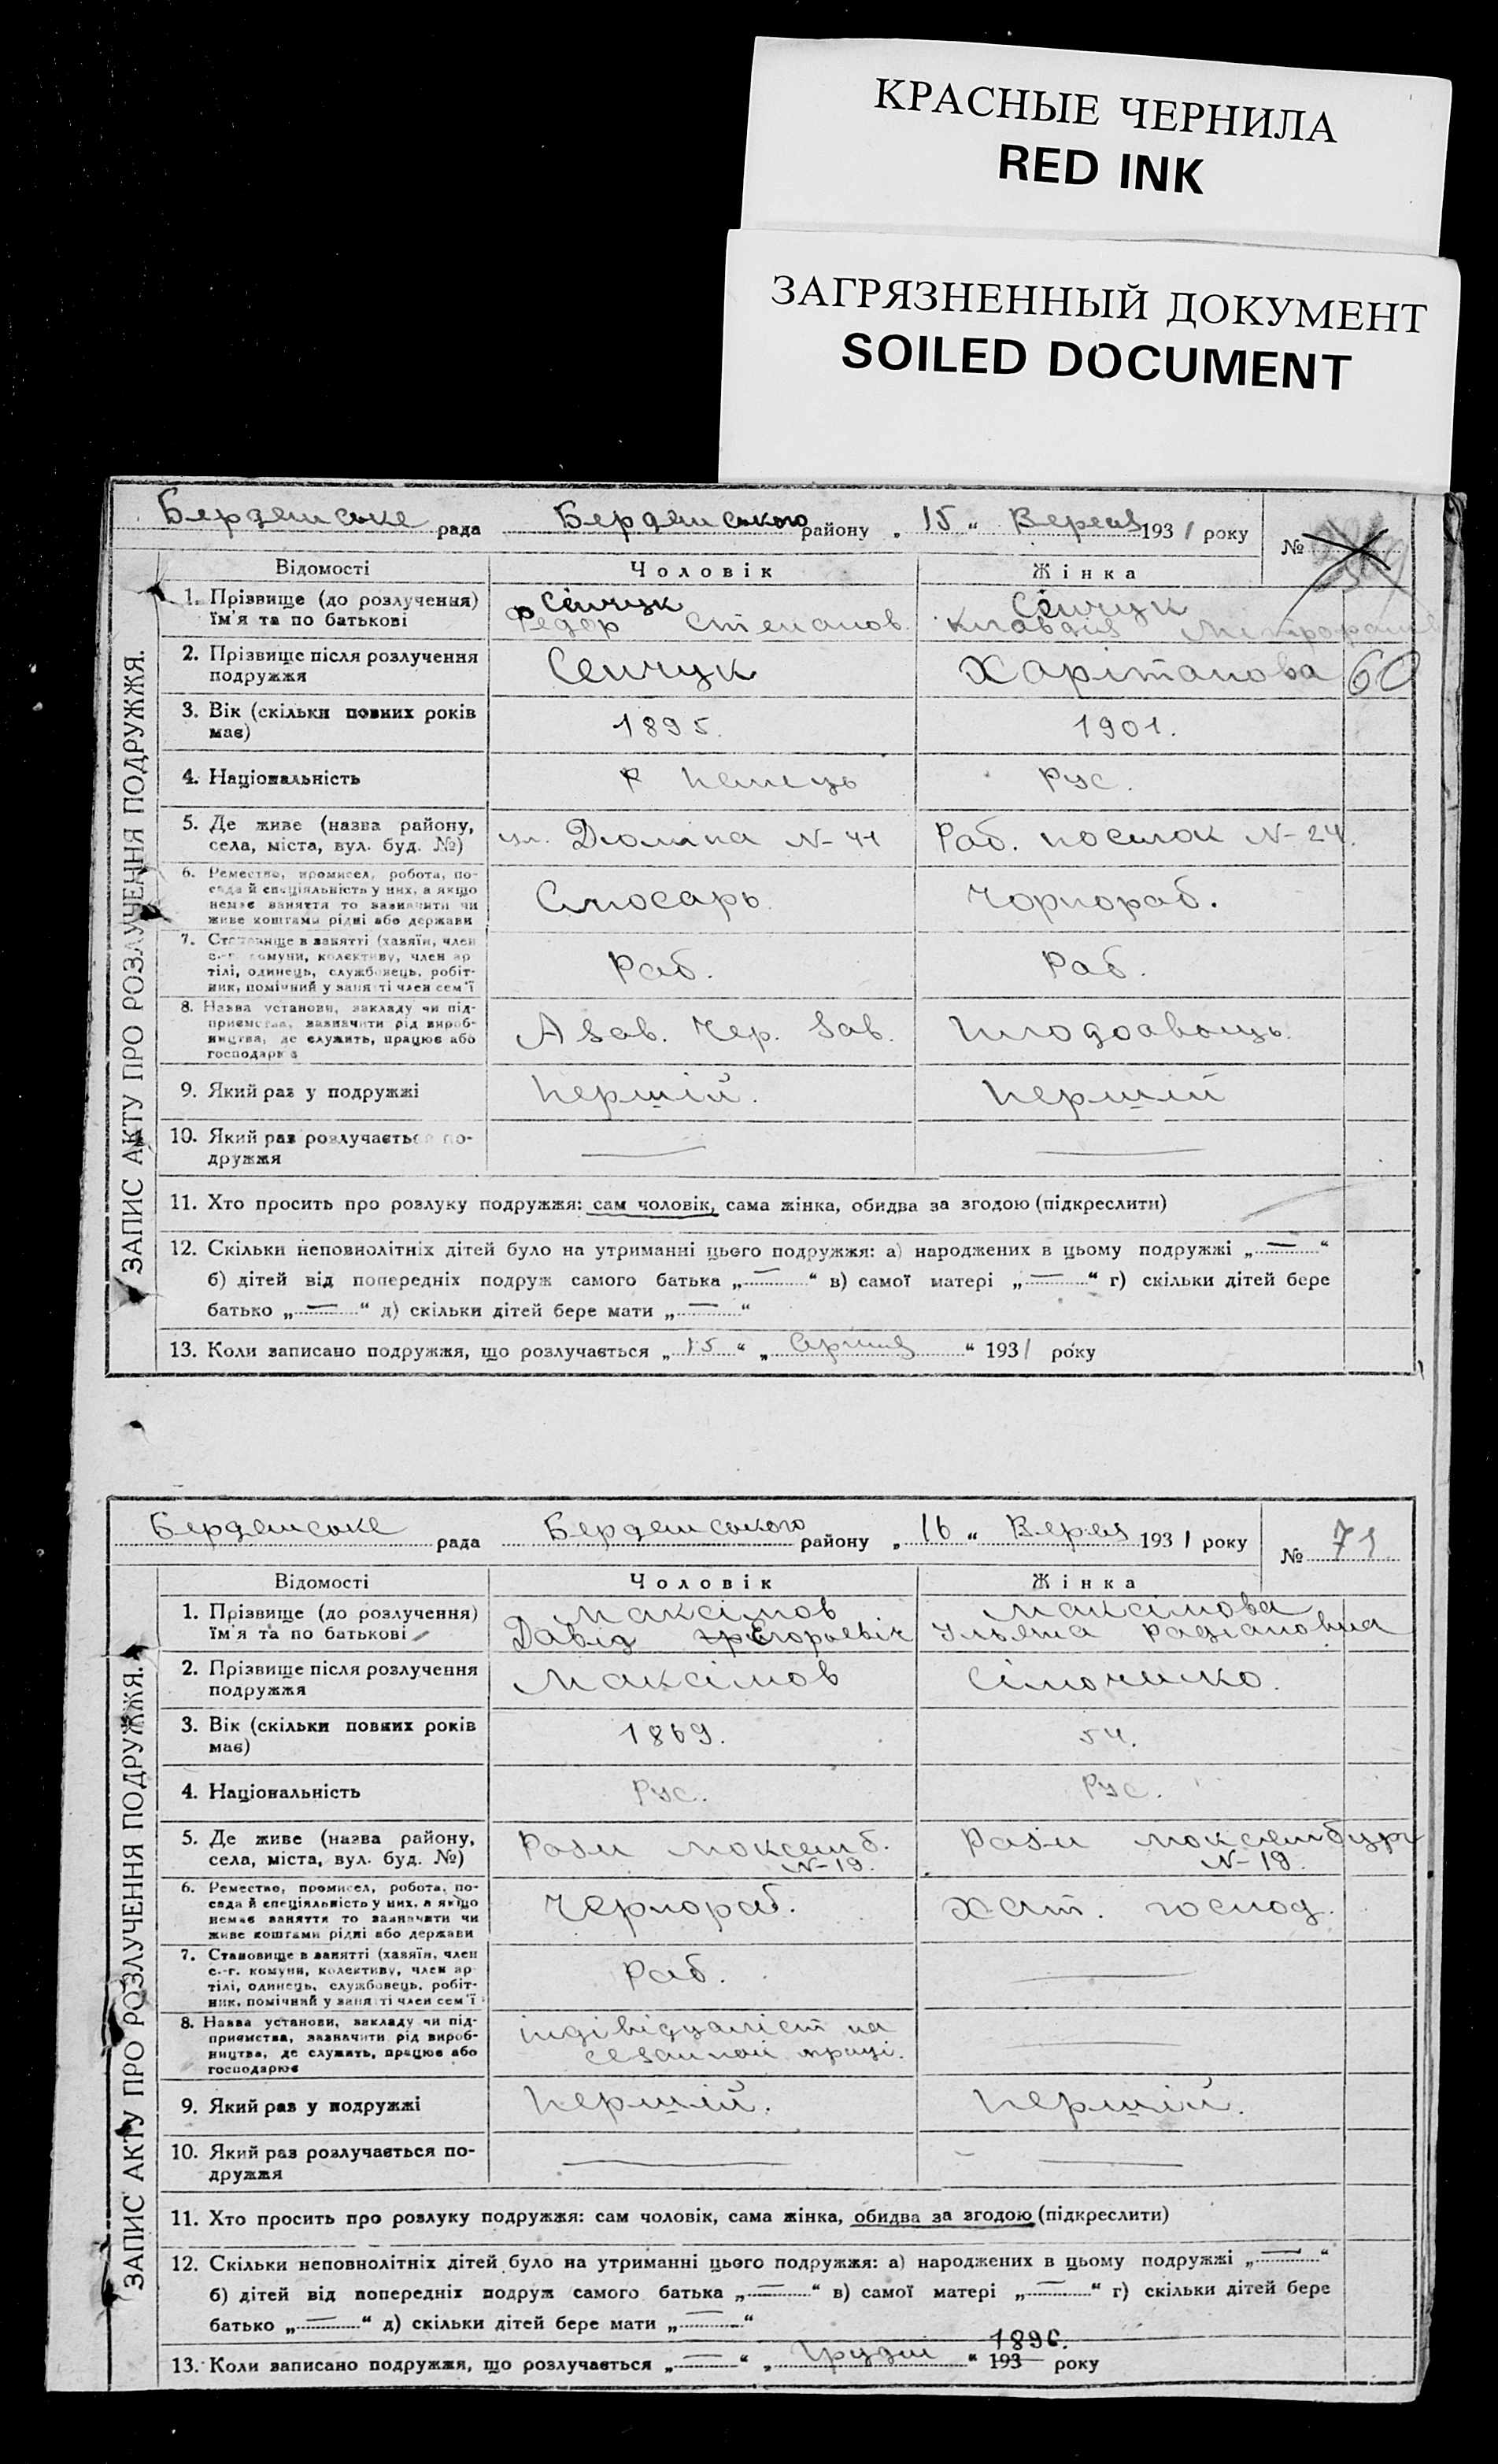 КРАСНЫЕ ЧЕРНИЛА
RED INK
ЗАГРЯЗНЕННЫЙ ДОКУМЕНТ
SOILED DOCUMENT
ЗАПИС АКТУ ПРО РОЗЛУЧЕННЯ ПОДРУЖЖЯ.
Бердянське рада Бердянського району „ 15 “ Вересня 1931 року №
Відомості Чоловік Жінка
1. Прізвище (до розлучення) Сенчук Сенчук
їм'я та по батькові Федор Степанов. Клавдія
2. Прізвище після розлучення Сенчук Харітанова 60
подружжя
3. Вік (скільки повних років 1895. 1901.
має)
4. Національність Рус.
5. Де живе (назва району, Раб. поселок N-24.
села, міста, вул. буд. №) ул. Дюміна N-41
6. Ремество, промисел, робота, по-
сада й спеціяльність у них, а якщо Слюсарь Чорнораб.
немає заняття то зазначити чи
живе коштами рідні або держави
7. Становище в занятті (хазяїн, член
с.-г. комуни, колективу, член ар-
тілі, одинець, службовець, робіт- Раб. Раб.
ник, помічний у занятті член сем'ї
8. Назва установи, закладу чи під-
приємства, зазначити рід вироб- Азов. Чер. Зав.
ництва, де служить, працює або
господарює
9. Який раз у подружжі Першій. Першій
10. Який раз розлучається по- — —
дружжя
11. Хто просить про розлуку подружжя: сам чоловік, сама жінка, обидва за згодою (підкреслити)
12. Скільки неповнолітніх дітей було на утриманні цього подружжя: а) народжених в цьому подружжі „—“
б) дітей від попередніх подруж самого батька „—“ в) самої матері „—“ г) скільки дітей бере
батько „—“ д) скільки дітей бере мати „—“
13. Коли записано подружжя, що розлучається „15“ „ “ 1931 року
ЗАПИС АКТУ ПРО РОЗЛУЧЕННЯ ПОДРУЖЖЯ.
Бердянське рада Бердянського району „ 16 “ Верес 1931 року № 71
Відомості Чоловік Жінка
1. Прізвище (до розлучення) Максімов Максімова
їм'я та по батькові Давід Єгорьевіч Ульяна Радіановна
2. Прізвище після розлучення Максімов
подружжя
3. Вік (скільки повних років 1869. 54.
має)
4. Національність Рус. Рус.
5. Де живе (назва району, Рози люксемб. Рози люксембург
села, міста, вул. буд. №) N-19. N-19.
6. Ремество, промисел, робота, по-
сада й спеціяльність у них, а якщо Чернораб. Хат. господ.
немає заняття то зазначити чи
живе коштами рідні або держави
7. Становище в занятті (хазяїн, член
с.-г. комуни, колективу, член ар-
тілі, одинець, службовець, робіт- Раб. —
ник, помічний у занятті член сем'ї
8. Назва установи, закладу чи під- індівідуаліст на
приємства, зазначити рід вироб- сезанной праці. —
ництва, де служить, працює або
господарює
9. Який раз у подружжі Першій. Першій.
10. Який раз розлучається по- — —
дружжя
11. Хто просить про розлуку подружжя: сам чоловік, сама жінка, обидва за згодою (підкреслити)
12. Скільки неповнолітніх дітей було на утриманні цього подружжя: а) народжених в цьому подружжі „—“
б) дітей від попередніх подруж самого батька „—“ в) самої матері „—“ г) скільки дітей бере
батько „—“ д) скільки дітей бере мати „—“
1896.
13. Коли записано подружжя, що розлучається „—“ „ Грудні “ 193 року